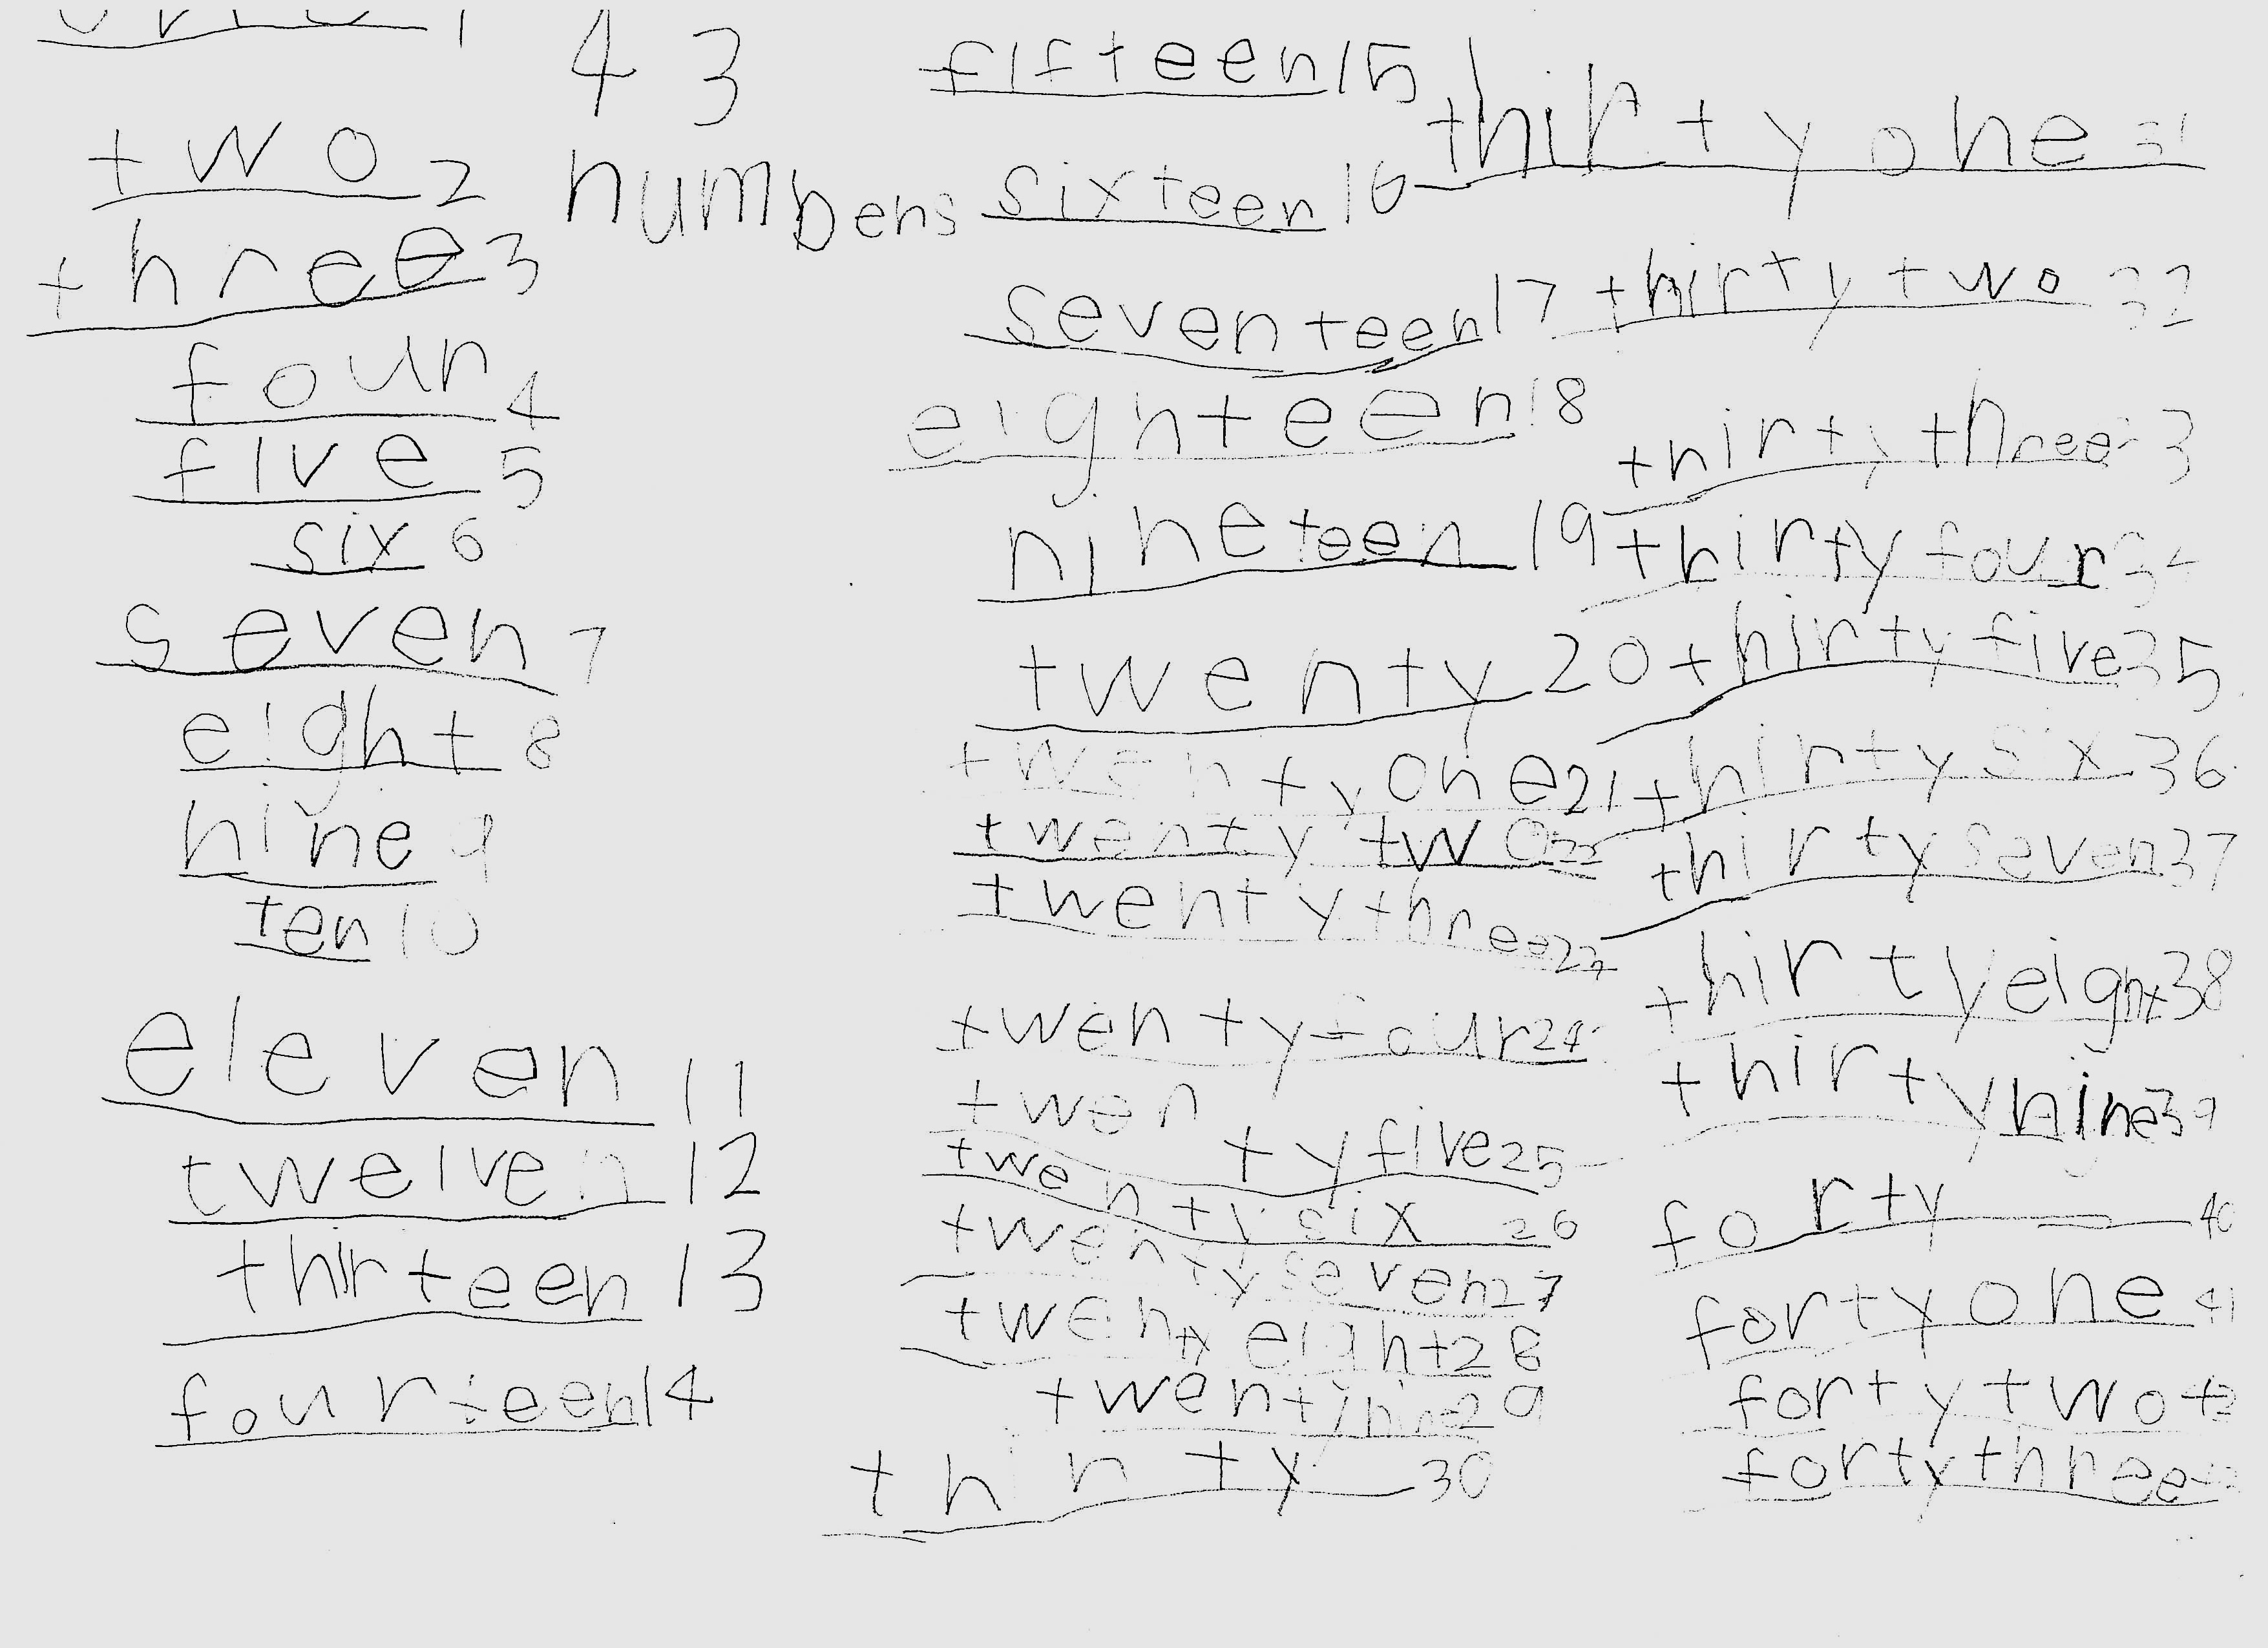 one 1
two 2
three 3
four 4
five 5
six 6
seven 7
eight 8
nine 9
ten 10
eleven 11
twelven 12
thirteen 13
fourteen 14
43
numbers
fifteen 15
sixteen 16
seventeen 17
eighteen 18
nineteen 19
twenty 20
twenty one 21
twenty two 22
twenty three 23
twenty four 24
twenty five 25
twenty six 26
twenty seven 27
twenty eight 28
twenty nine 29
thirty 30
thirty one 31
thirty two 32
thirty three 33
thirty four 34
thirty five 35
thirty six 36
thirty seven 37
thirty eight 38
thirty nine 39
forty 40
forty one 41
forty two 42
forty three